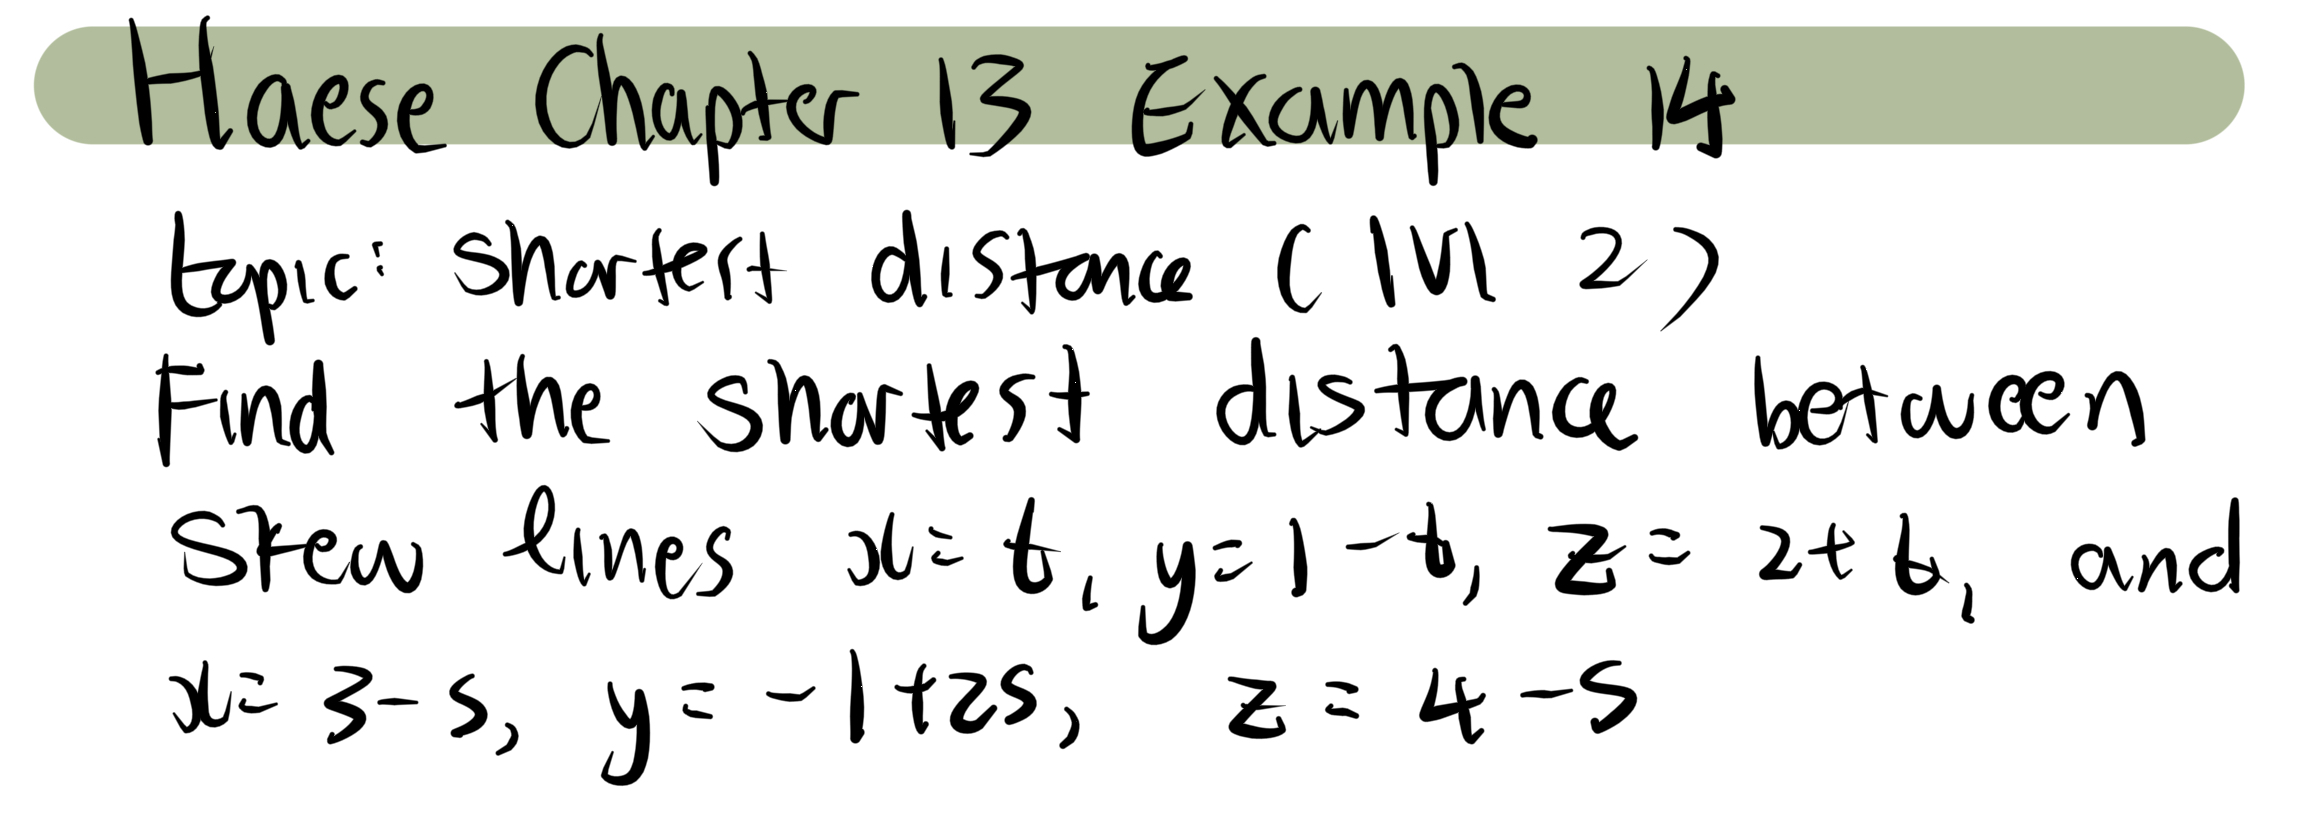 Haese Chapter 13 Example 14
topic: shortest distance (lvl 2)
Find the shortest distance between
skew lines x = t, y = 1 - t, z = 2 + t, and
x = 3 - s, y = -1 + 2s, z = 4 - s